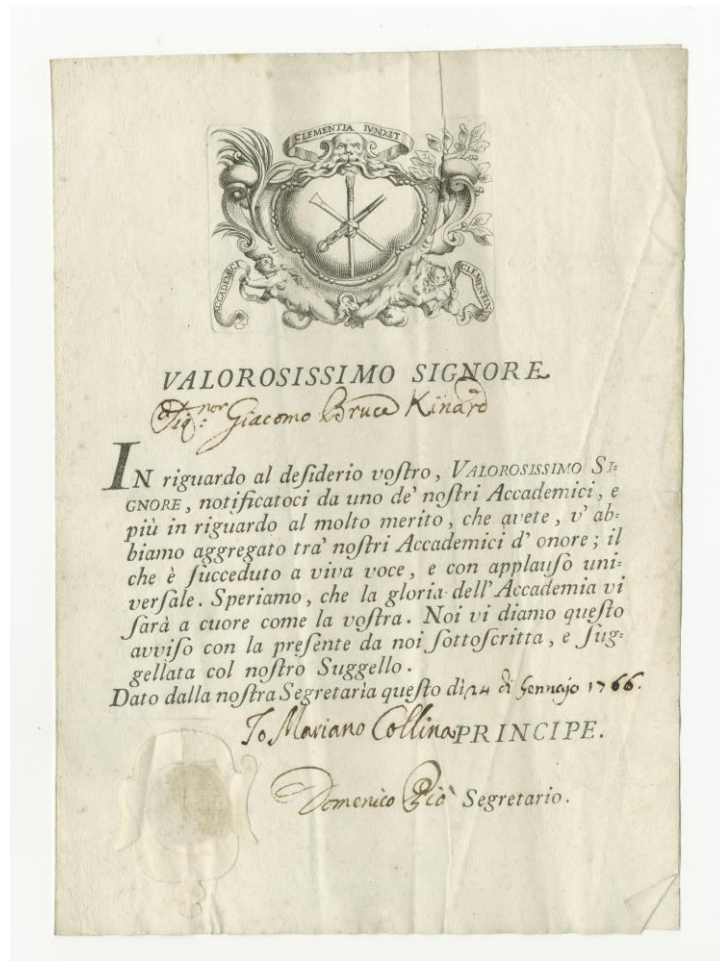 CLEMENTIA IUNXIT
ACCADEMICI
CLEMENTINI
VALOROSISSIMO SIGNORE
Sig:nor Giacomo Bruce Kinard
IN riguardo al deſiderio voſtro, VALOROSISSIMO SI=
GNORE, notificatoci da uno de' noſtri Accademici, e
più in riguardo al molto merito, che avete, v' ab=
biamo aggregato tra' noſtri Accademici d' onore; il
che è ſucceduto a viva voce, e con applauſo uni=
verſale. Speriamo, che la gloria dell' Accademia vi
ſarà a cuore come la voſtra. Noi vi diamo queſto
avviſo con la preſente da noi ſottoſcritta, e ſug=
gellata col noſtro Suggello.
Dato dalla noſtra Segretaria queſto dì 24 di Gennajo 1766.
Io Mariano Collina PRINCIPE.
Domenico Piò Segretario.